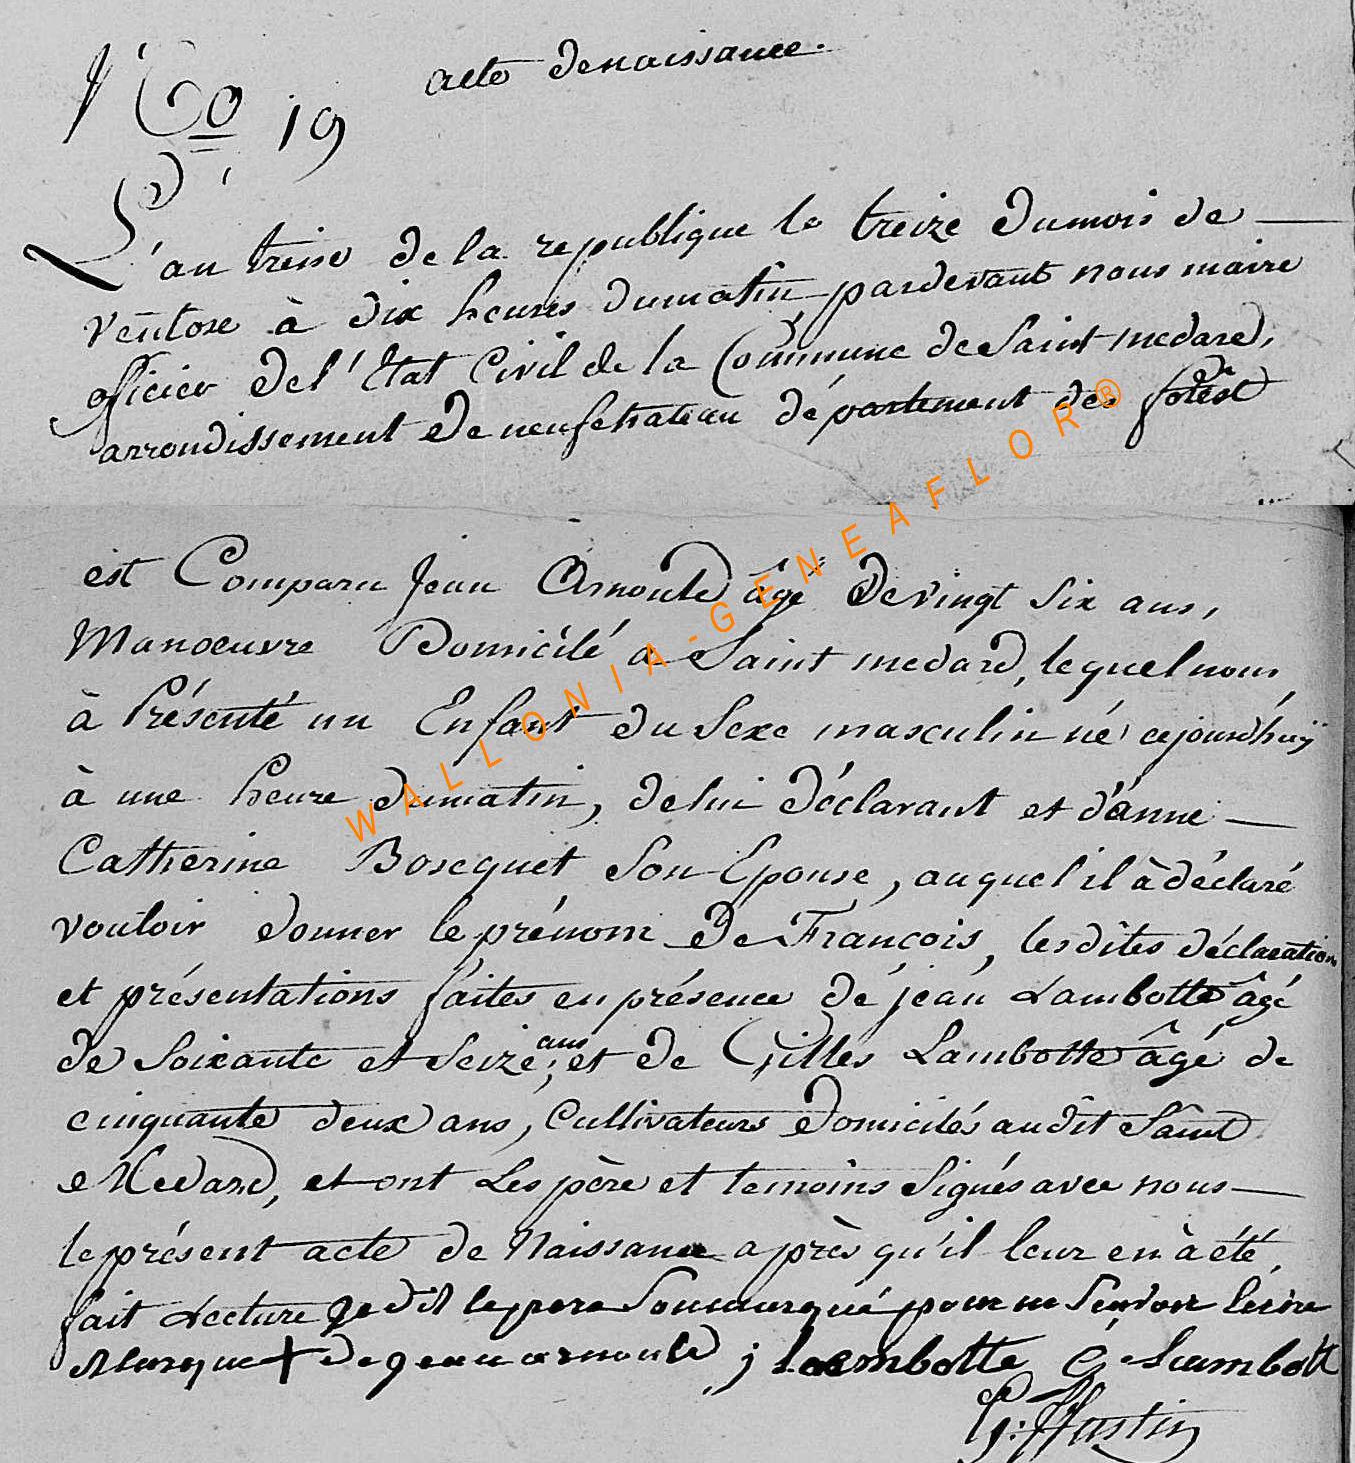 N.º 19
acte de naissance.
L'an treise de la republique le treize du mois de
ventose à dix heures du matin pardevant nous maire
officier de l'Etat Civil de la Commune de Saint medard,
arrondissement de neufchateau département des forêst
est Comparu Jean Arnould âgé de vingt six ans,
Manoeuvre Domicilé a Saint medard, lequel nous
à Présenté un Enfant du Sexe masculin né cejourdhuÿ
à une heure du matin, de lui déclarant et d'anne
Catherine Bosequet Son Epouse, auquel il à déclaré
vouloir donner le prénom de François, lesdites déclaration
et présentations faites en présence de jean Lambotte âgé
de Soixante et Seize ans, et de Gilles Lambotte âgé de
cinquante deux ans, Cultivateurs Domicilés audit Saint
Medard, et ont Les père et temoins Signés avec nous
le présent acte de Naissance après qu'il leur en à été
fait Lecture le pere Soumarqué pour ne Scavoir
Marque + de jean arnould j Lambotte G Lambott
G: Hastin
WALLONIA-GENEAFLOR®